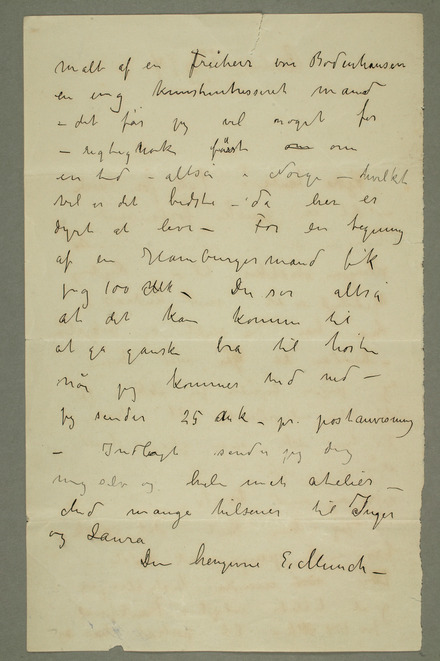 malt af en Freiherr von Bodenhausen
en ung kunstinteresseret mand
– det får jeg vel noget for
– rigtignok først om
en tid – altså i Norge – hvilket
vel er det bedste – da her er
dyrt at leve – For en tegning
af en Hamburgermand fik
jeg 100 Mk – Du ser altså
at det kan komme til
at gå ganske bra til høsten
når jeg kommer ned –
Jeg sender 25 Mk – pr. postanvisning
– Indlagt sender jeg dig
mig selv og hele mit atelier –
Med mange hilsener til Inger
og Laura
Din hengivne E. Munch –